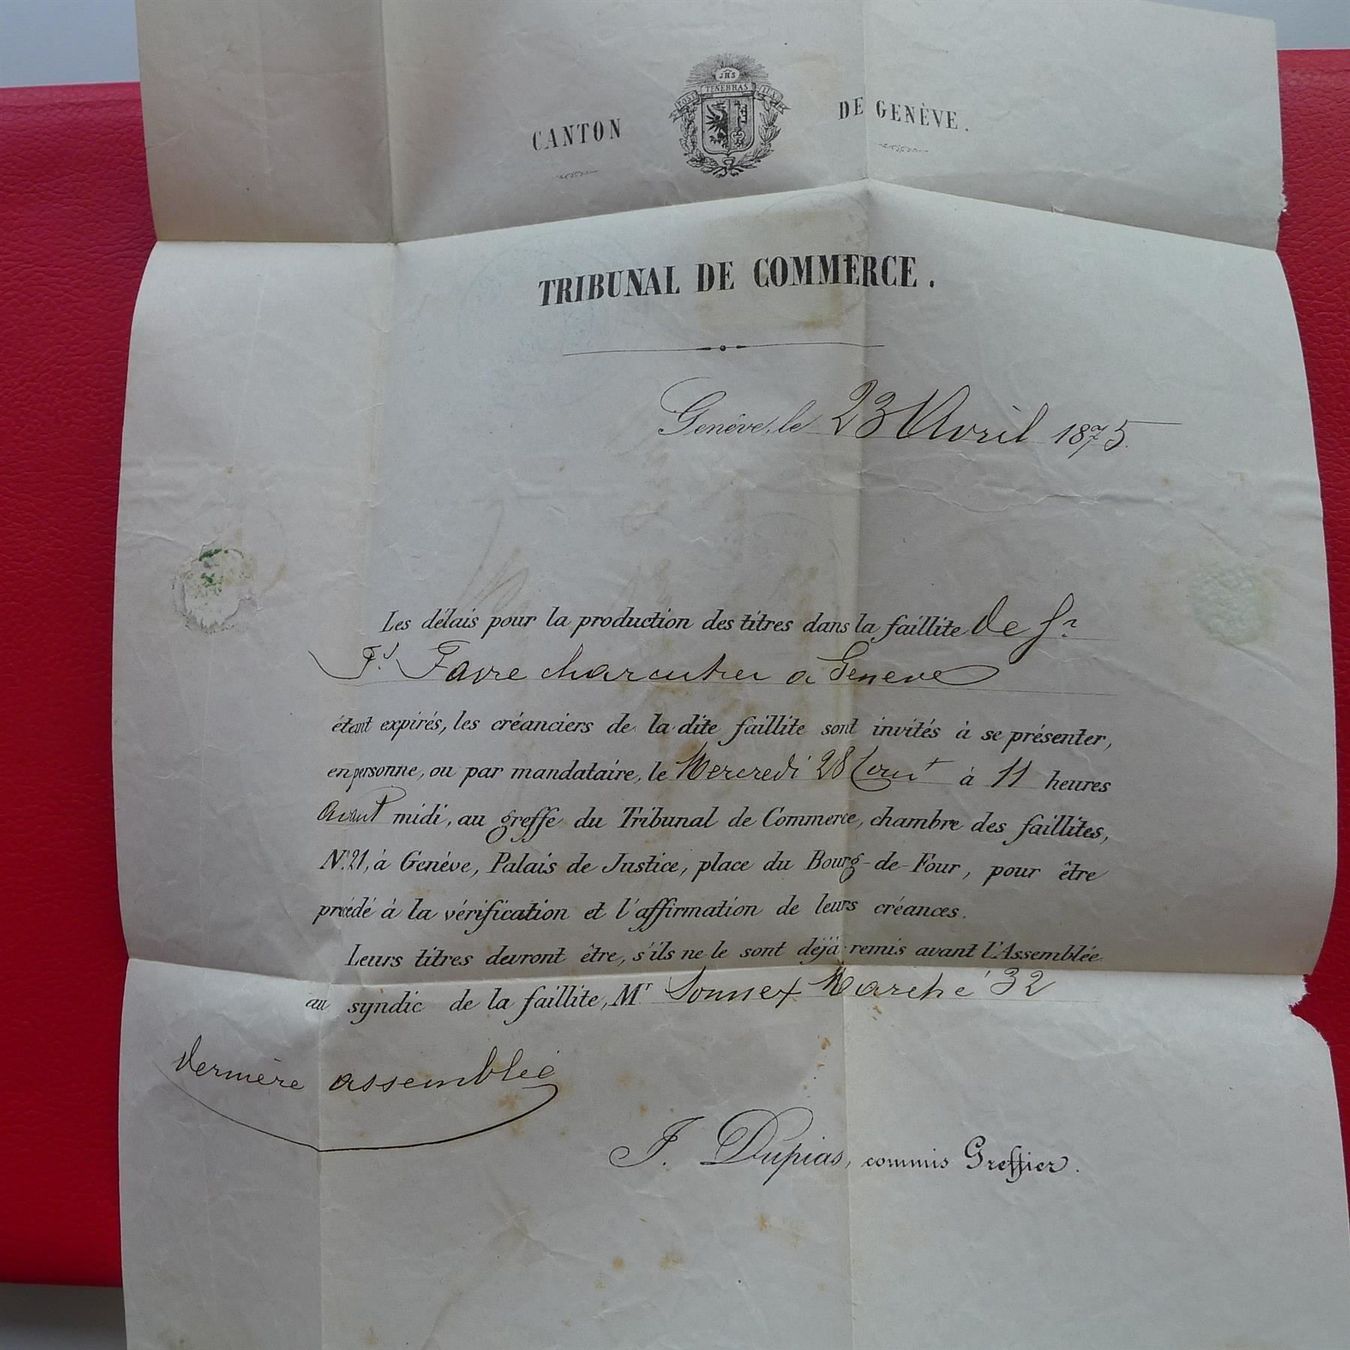 CANTON DE GENÈVE.
JHS
POST TENEBRAS LUX
TRIBUNAL DE COMMERCE.
Genève, le 23 Avril 1875.
Les délais pour la production des titres dans la faillite de Sr
Fs Favre charcutier a Geneve
étant expirés, les créanciers de la dite faillite sont invités à se présenter,
en personne, ou par mandataire, le Mercredi 28 Court à 11 heures
avant midi, au greffe du Tribunal de Commerce, chambre des faillites,
No 21, à Genève, Palais de Justice, place du Bourg-de-Four, pour être
procédé à la vérification et l'affirmation de leurs créances.
Leurs titres devront être, s'ils ne le sont déjà remis avant l'Assemblée
au syndic de la faillite, Mr Sonnex Marché 32
dernière assemblée
J. Dupias, commis Greffier.